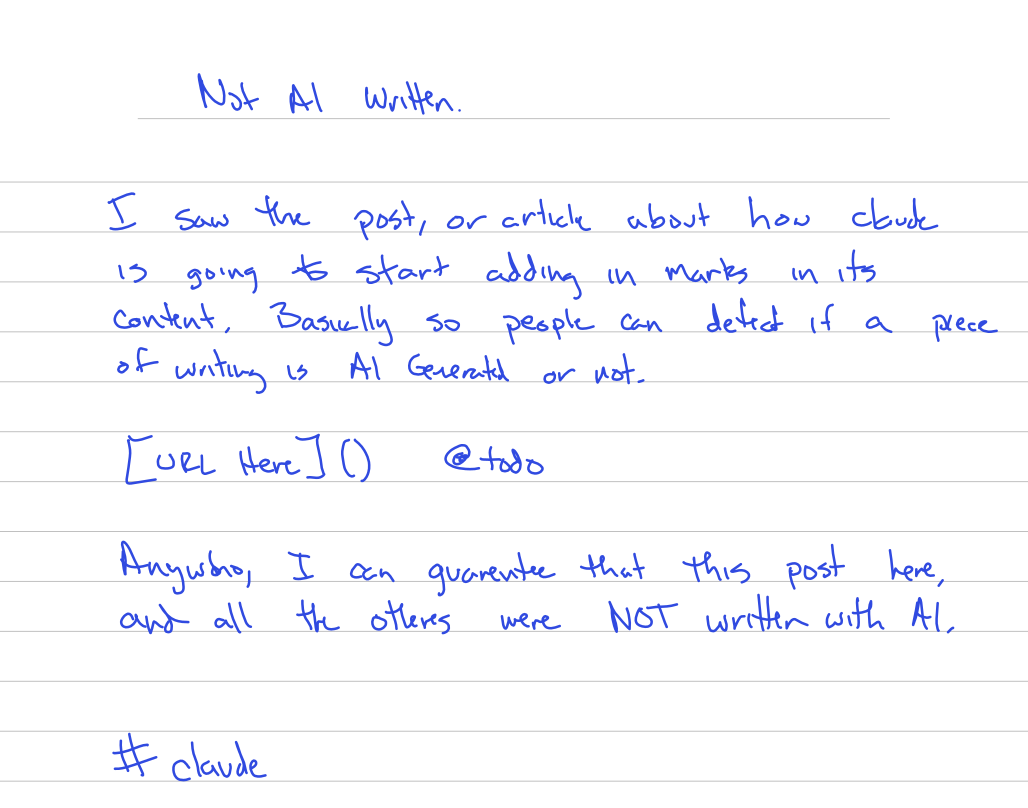 Not AI written.
I saw the post, or article about how claude
is going to start adding in marks in its
content. Basically so people can detect if a piece
of writing is AI Generated or not.
[URL Here]() @todo
Anywho, I can guarentee that this post here,
and all the otheres were NOT written with AI.
# claude